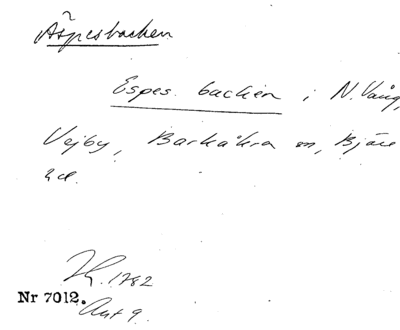 Äspesbacken
Espes backen i N. Vång,
Vejby, Barkåkra sn, Bjäre
hd.
1782
Nr 7012.
Akt 9.